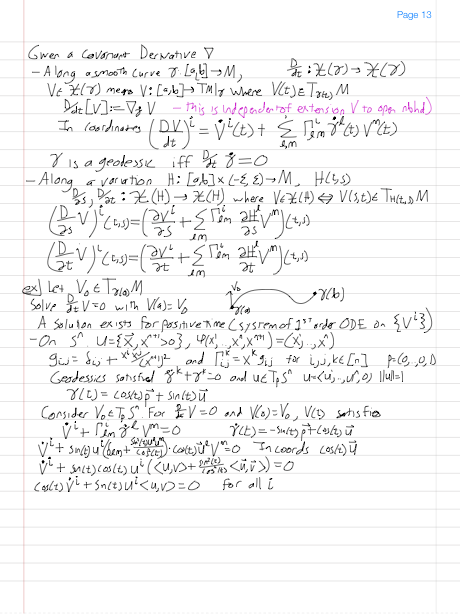 Page 13
Given a Covariant Derivative ∇
- Along a smooth curve γ: [a,b] → M, D/dt : 𝒳(γ) → 𝒳(γ)
V ∈ 𝒳(γ) means V: [a,b] → TM|γ where V(t) ∈ T_γ(t) M
D/dt [V] := ∇_γ̇ V - this is independent of extension V to open nbhd)
In coordinates (DV/dt)^i = V̇^i(t) + Σ_{l,m} Γ^i_{lm} γ̇^l(t) V^m(t)
γ is a geodesic iff D/dt γ̇ = 0
- Along a variation H: [a,b] × (-ε, ε) → M, H(t,s)
D/∂s, D/∂t : 𝒳(H) → 𝒳(H) where V ∈ 𝒳(H) ⇔ V(s,t) ∈ T_H(t,s) M
(D/∂s V)^i (t,s) = (∂V^i/∂s + Σ_{lm} Γ^i_{lm} ∂H^l/∂s V^m)(t,s)
(D/∂t V)^i (t,s) = (∂V^i/∂t + Σ_{lm} Γ^i_{lm} ∂H^l/∂t V^m)(t,s)
ex) Let V_0 ∈ T_γ(a) M
V_0 γ(a) γ(b)
Solve D/dt V = 0 with V(a) = V_0
A solution exists for positive time (system of 1^st order ODE on {V^i})
- On S^n U = {x⃗, x^{n+1} > 0}, φ(x^1, .., x^n, x^{n+1}) = (x^1, .., x^n)
g_ij = δ_ij + x^i x^j/(x^{n+1})^2 and Γ^k_ij = x^k g_ij for i,j,k ∈ [n] p = (0, .., 0, 1)
Geodesics satisfied γ̈^k + γ^k = 0 and u ∈ T_p S^n u = (u^1, .., u^n, 0) ||u|| = 1
γ(t) = cos(t) p⃗ + sin(t) u⃗
Consider V_0 ∈ T_p S^n. For D/dt V = 0 and V(0) = V_0, V(t) satisfies
V̇^i + Γ^i_{lm} γ̇^l V^m = 0 γ̇(t) = -sin(t) p⃗ + cos(t) u⃗
V̇^i + sin(t) u^i (δ_lm + sin²(t) u^l u^m/cos²(t)) · cos(t) u^l V^m = 0 In coords cos(t) u⃗
V̇^i + sin(t) cos(t) u^i (<u,v> + sin²(t)/cos²(t) <u⃗,v⃗>) = 0
cos(t) V̇^i + sin(t) u^i <u,v> = 0 for all i